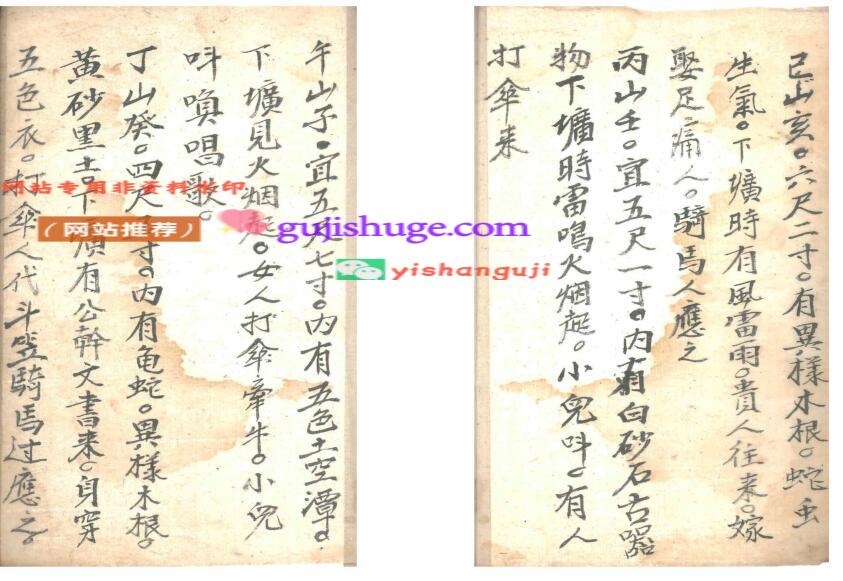 巳山亥。六尺二寸。有異樣木根。蛇虫
生氣。下壙時有風雷雨。貴人往来。嫁
娶足痛人。騎馬人應之
丙山壬。宜五尺一寸。内有白砂石古器
物下壙時雷鳴火烟起。小兒呌。有人
打傘来
午山子。宜五尺七寸。内有五色土空潭。
下壙見火烟起。女人打傘牽牛。小兒
呌喚唱歌。
丁山癸。四尺寸。内有龟蛇。異樣木根。
黄砂黑土。下壙有公幹文書来。身穿
五色衣。打傘人代斗笠騎馬过應之。
网站专用非资料水印
（网站推荐）
gujishuge.com
yishanguji